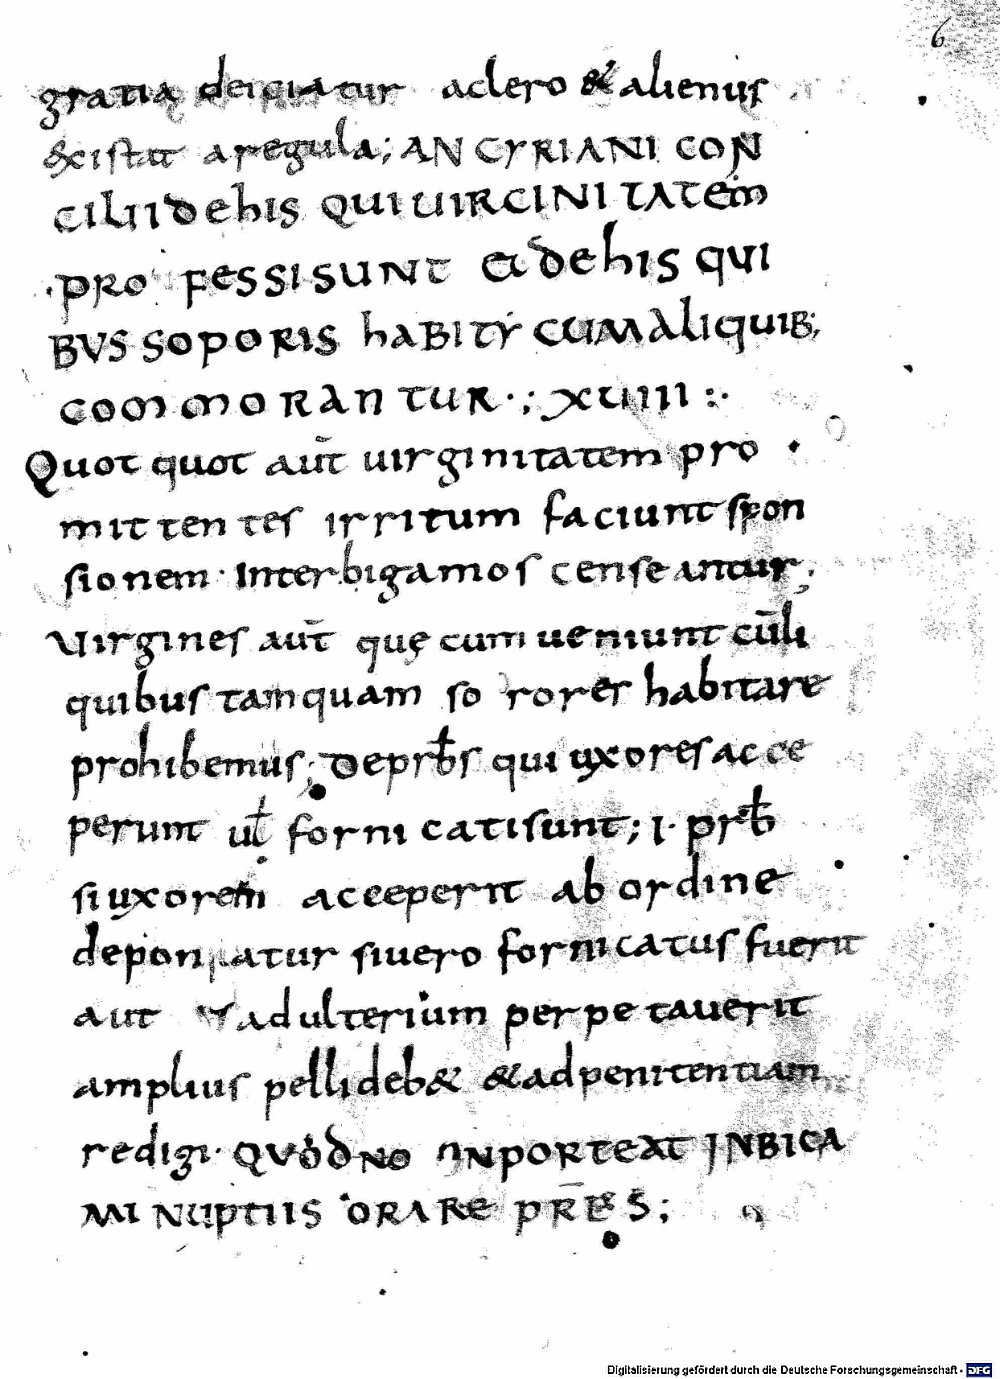 6
gratia deiciatur aclero & alienus
&xistat aregula; ANCYRIANI CON
CILII dehis QUI UIRCINITATEM
PROFESSISUNT ET dehis QUI
BUS SOPORIS hABITỲ CUMALIQUIB;
COMMORANTUR·; XUIIII :·
Quot quot aut̄ uirginitatem pro
mittentes irritum faciunt spon
sionem· Interbigamos censeantur;
Virgines aut̄ quę cum ueniunt cūali
quibus tamquam sorores habitare
prohibemus; Deprb̄s qui uxores acce
perunt ul̄ fornicatisunt; I· prb̄
siuxorem acceperit ab ordine
deponatur siuero fornicatus fuerit
aut adulterium perpetauerit
amplius pellideb& &adpenitentiam
redigi· QUOD NO NPORTEAT INBICA
MI NUPTIIS ORARE PR̄ES;
Digitalisierung gefördert durch die Deutsche Forschungsgemeinschaft - DFG